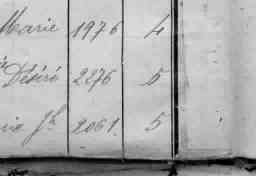 Marie 1976 4
Désiré 2276 5
Jh 2061. 5